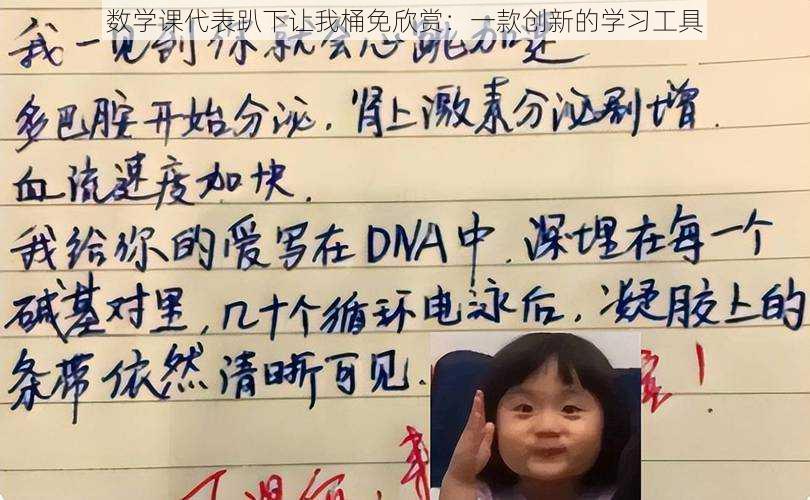 数学课代表趴下让我桶免欣赏：一款创新的学习工具
我一见到你就会心跳加速
多巴胺开始分泌，肾上激素分泌剧增．
血流速度加快．
我给你的爱写在DNA中，深埋在每一个
碱基对里，几十个循环电泳后，凝胶上的
条带依然清晰可见．
！